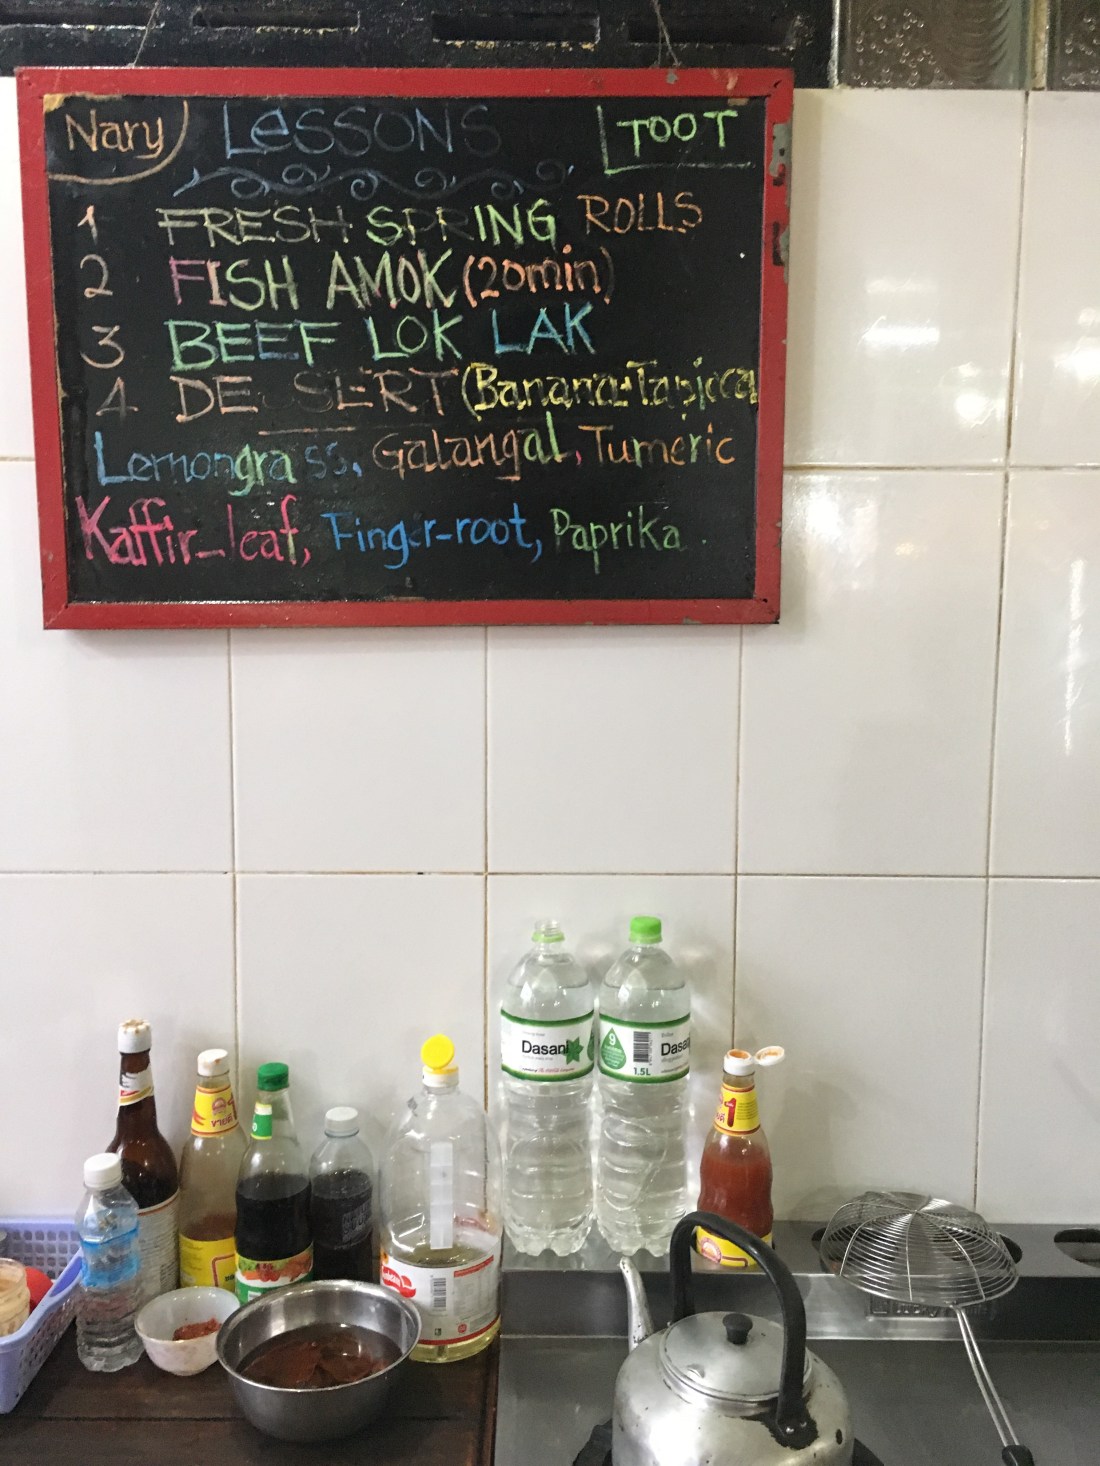 Nary LeSSONS TOOT
1 FRESH SPRING ROLLS
2 FISH AMOK (20min)
3 BEEF LOK LAK
4 DESSERT (Banana-Tapioca
Lemongrass, Galangal, Tumeric
Kaffir-leaf, Finger-root, Paprika.
Dasani
9
Dasani
1.5L